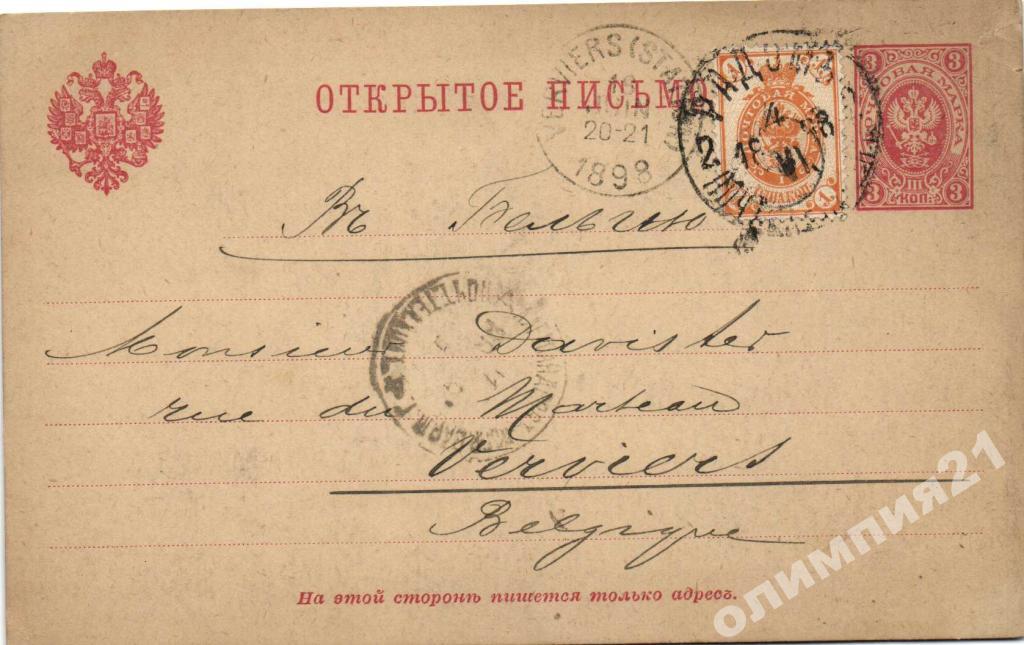 ОТКРЫТОЕ ПИСЬМО
VERVIERS (STA
18
JUIN
20-21
1898
ПОЧТОВАЯ МАРКА
3
3
3
3
КОП.
1
1
2
РАДОМЪ
18 VI
Въ Бельгію
Monsieur Davister
rue du Marteau
Verviers
Belgique
На этой сторонѣ пишется только адресъ.
олимпия21